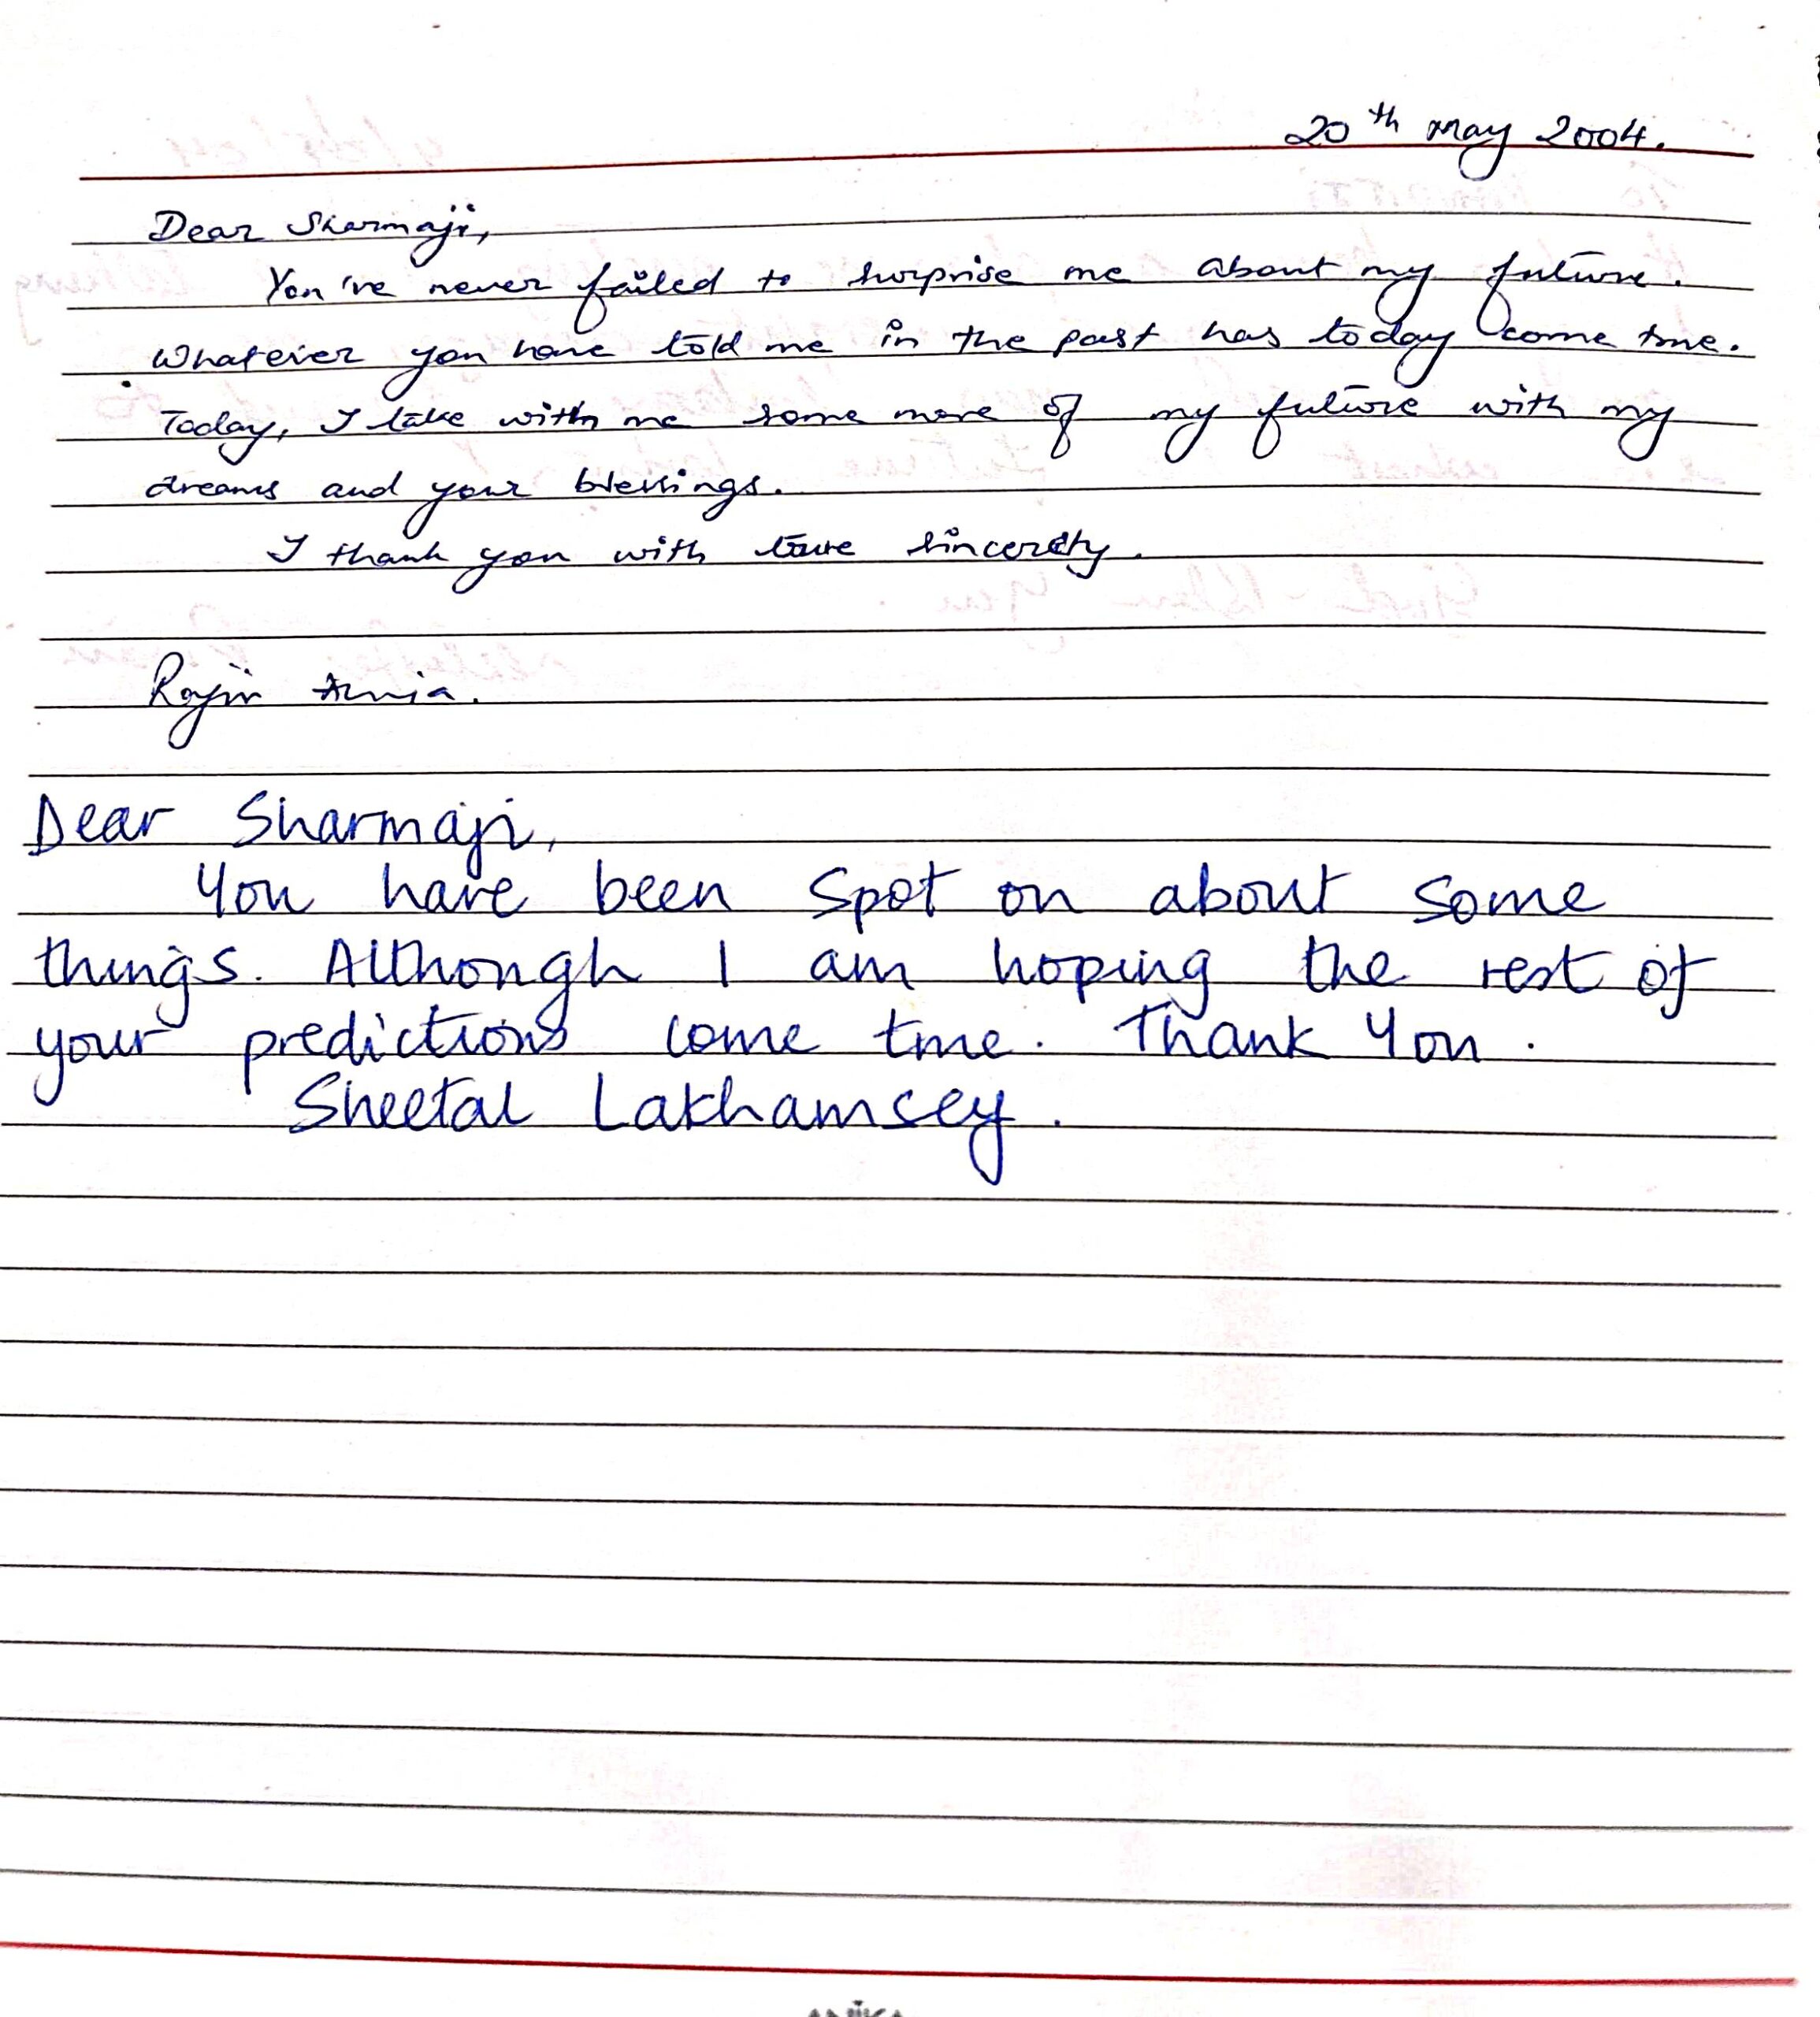 20th May 2004.
Dear Sharmaji,
You've never failed to surprise me about my future.
Whatever you have told me in the past has today come true.
Today, I take with me some more of my future with my
dreams and your blessings.
I thank you with love sincerely.
Rajiv
Dear Sharmaji,
You have been spot on about some
things. Although I am hoping the rest of
your predictions come true. Thank You.
Sheetal Lakhamsey.